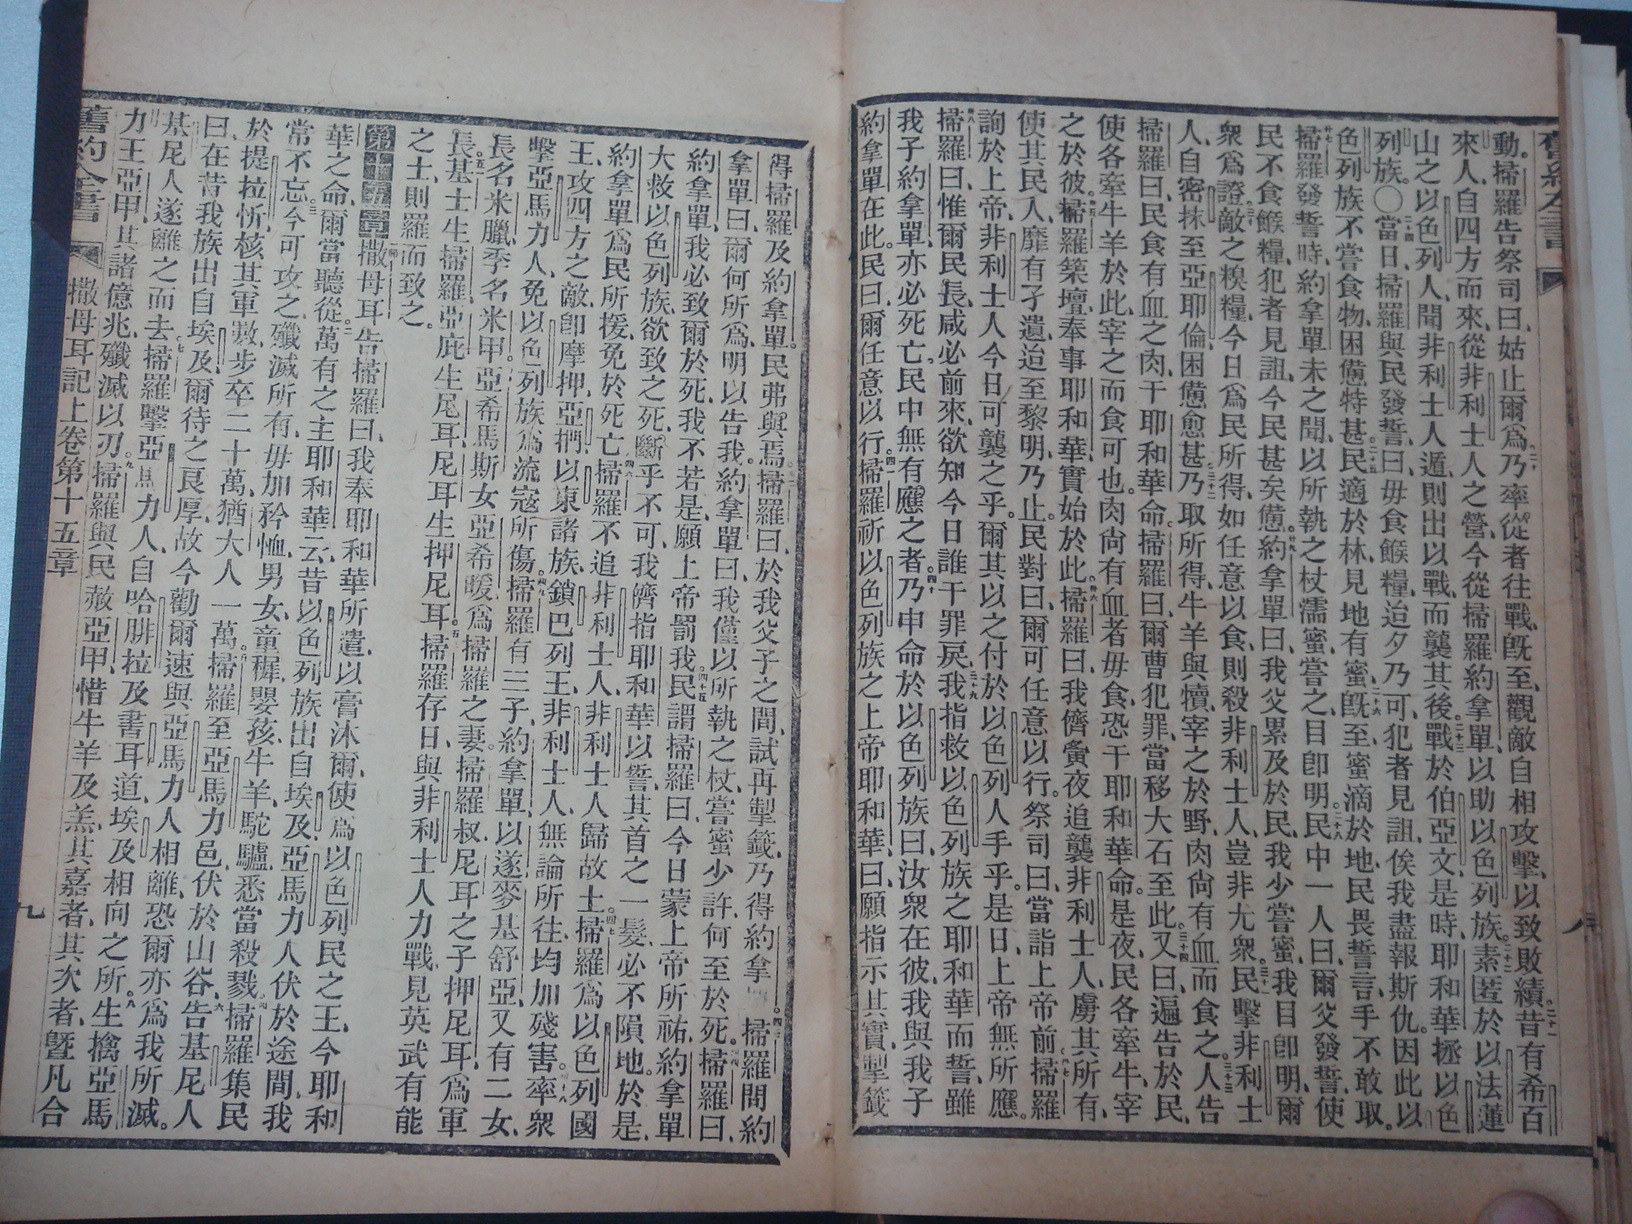 動、掃羅告祭司曰、姑止爾爲、乃率從者往戰、旣至、觀敵自相攻擊、以致敗績、昔有希百
來人、自四方而來、從非利士人之營、今從掃羅約拿單、以助以色列族、素匿於以法蓮
山之以色列人、聞非利士人遁、則出以戰、而襲其後、戰於伯亞文、是時耶和華拯以色
列族。〇當日掃羅與民發誓曰、毋食餱糧、迨夕乃可、犯者見詛、俟我盡報斯仇、因此以
色列族不嘗食物、困憊特甚、民適於林、見地有蜜、旣至、蜜滴於地、民畏誓言、手不敢取。
掃羅發誓時、約拿單未之聞、以所執之杖濡蜜嘗之、目卽明、民中一人曰、爾父發誓、使
民不食餱糧、犯者見詛、今民甚矣憊、約拿單曰、我父累及於民、我少嘗蜜、我目卽明、爾
衆爲證、敵之糗糧、今日爲民所得、如任意以食、則殺非利士人、豈非尤衆、民擊非利士
人、自密抹至亞耶倫、困憊愈甚、乃取所得、牛羊與犢、宰之於野、肉尙有血而食之、人告
掃羅曰、民食有血之肉、干耶和華命、掃羅曰、爾曹犯罪、當移大石至此、又曰、遍告於民、
使各牽牛羊於此、宰之而食可也、肉尙有血者毋食、恐干耶和華命、是夜民各牽牛、宰
之於彼、掃羅築壇、奉事耶和華、實始於此、掃羅曰、我儕夤夜追襲非利士人、虜其所有、
使其民人、靡有孑遺、迨至黎明乃止、民對曰、爾可任意以行、祭司曰、當詣上帝前、掃羅
詢於上帝、非利士人今日可襲之乎、爾其以之付於以色列人手乎、是日上帝無所應、
掃羅曰、惟爾民長、咸必前來、欲知今日誰干罪戾、我指救以色列族之耶和華而誓、雖
我子約拿單亦必死亡、民中無有應之者、乃申命於以色列族曰、汝衆在彼、我與我子
約拿單在此、民曰、爾任意以行、掃羅祈以色列族之上帝耶和華曰、願指示其實、掣籤
得掃羅及約拿單、民弗與焉、掃羅曰、於我父子之間、試再掣籤、乃得約拿 掃羅問約
拿單曰、爾何所爲、明以告我、約拿單曰、我僅以所執之杖、嘗蜜少許、何至於死、掃羅曰、
約拿單、我必致爾於死、我不若是、願上帝罰我、民謂掃羅曰、今日蒙上帝所祐、約拿單
大救以色列族、欲致之死、斷乎不可、我儕指耶和華以誓、其首之一髮、必不隕地、於是
約拿單爲民所援、免於死亡、掃羅不追非利士人、非利士人歸故土、掃羅爲以色列國
王、攻四方之敵、卽摩押、亞捫、以東諸族、鎖巴列王、非利士人、無論所往、均加殘害、率衆
擊亞馬力人、免以色列族爲流寇所傷、掃羅有三子、約拿單、以遂、麥基舒亞、又有二女、
長名米臘、季名米甲、亞希馬斯女亞希暖爲掃羅之妻、掃羅叔尼耳之子押尼耳、爲軍
長、基士生掃羅、亞庇生尼耳、尼耳生押尼耳、掃羅存日、與非利士人力戰、見英武有能
之士、則羅而致之。
第十五章 撒母耳告掃羅曰、我奉耶和華所遣、以膏沐爾、使爲以色列民之王、今耶和
華之命、爾當聽從、萬有之主耶和華云、昔以色列族出自埃及、亞馬力人伏於途間、我
常不忘、今可攻之、殲滅所有、毋加矜恤、男女童穉嬰孩、牛羊駝驢、悉當殺戮、掃羅集民
於提拉忻、核其軍數、步卒二十萬、猶大人一萬、掃羅至亞馬力邑、伏於山谷、告基尼人
曰、在昔我族出自埃及、爾待之良厚、故今勸爾速與亞馬力人相離、恐爾亦爲我所滅。
基尼人遂離之而去、掃羅擊亞馬力人、自哈腓拉及書耳道、埃及相向之所、生擒亞馬
力王亞甲、其諸億兆、殲滅以刃、掃羅與民赦亞甲、惜牛羊及羔、其嘉者、其次者、曁凡合
舊約全書 撒母耳記上卷第十五章 九